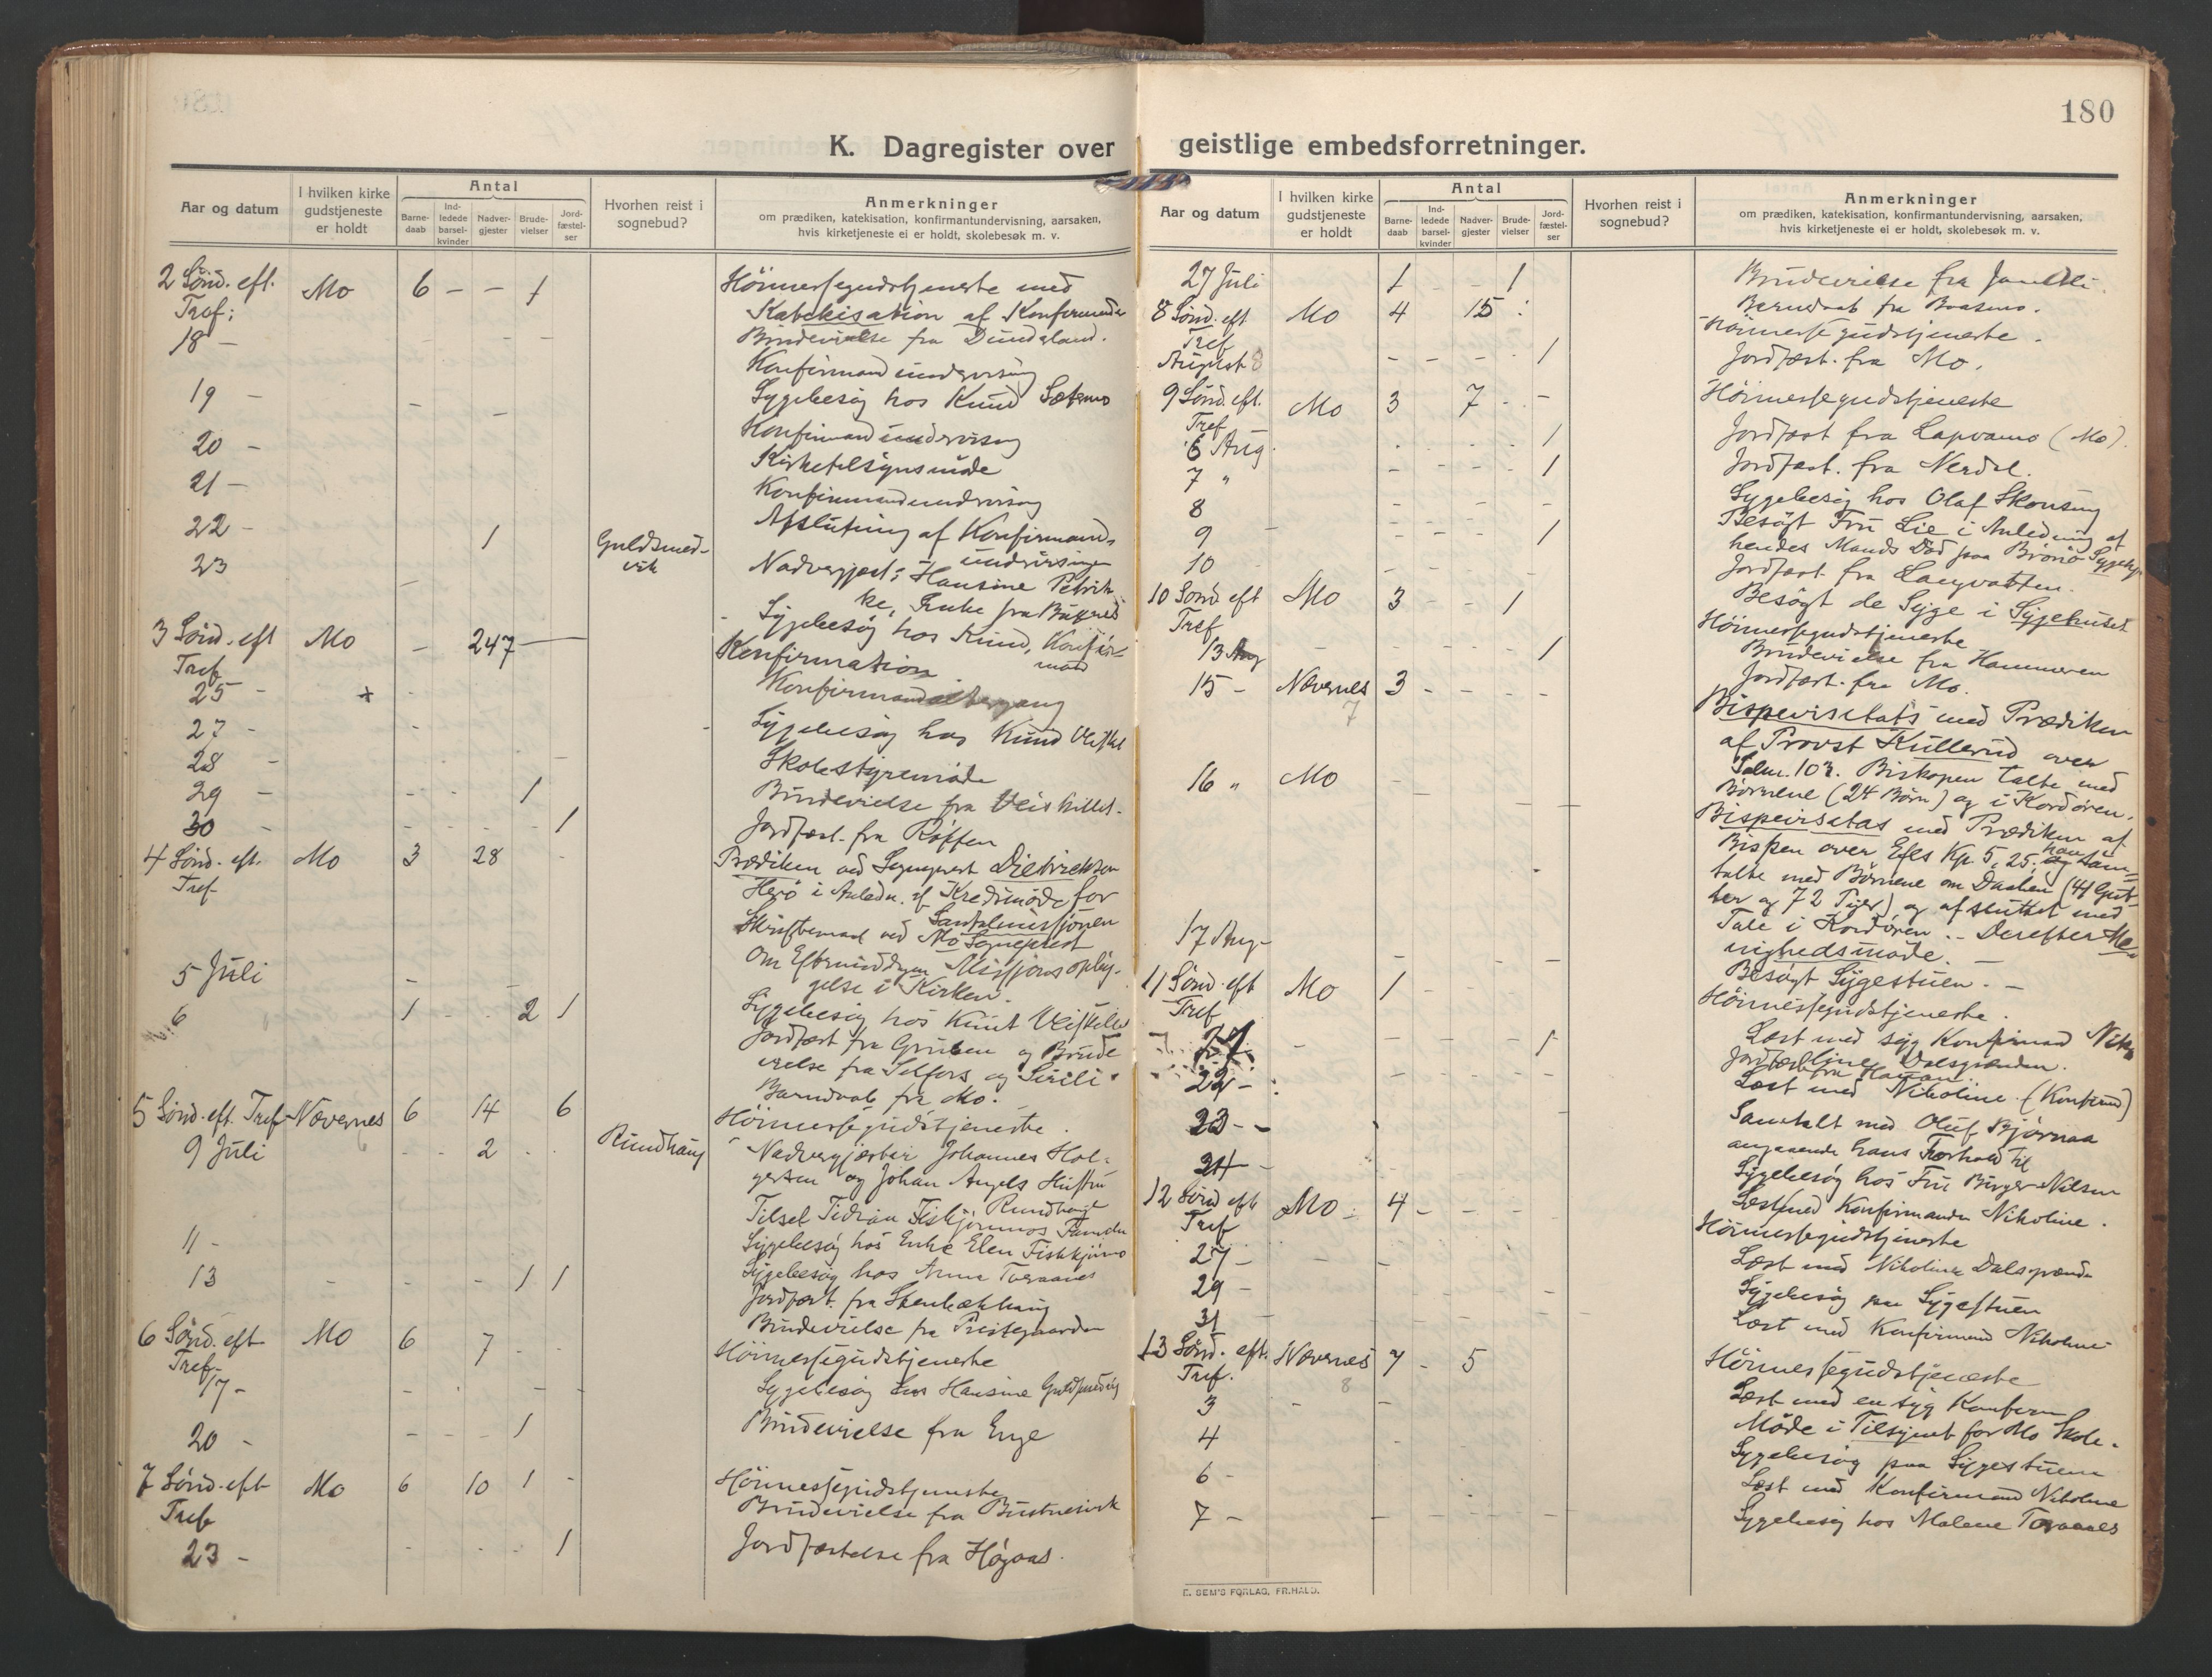 180
K. Dagregister over geistlige embedsforretninger.
Aar og datum
I hvilken kirke gudstjeneste er holdt
Antal
Barne-daab
Ind-ledede barsel-kvinder
Nadver-gjester
Brude-vielser
Jord-fæstel-ser
Hvorhen reist i sognebud?
Anmerkninger
om prædiken, katekisation, konfirmantundervisning, aarsaken,
hvis kirketjeneste ei er holdt, skolebesøk m. v.
2 Sönd. eft. Mo 6 - - 1 Höimessegudstjeneste med
Tref: Katekisation af Konfirmander
18 - Brudevielse fra Dunderland.
Konfirmandundervisning
19 - Sygebesög hos Knud Sætermo
20 - Konfirmandundervisng
Kirketilsynsmöde
21 - Konfirmandundervisng
22 - 1 Guldsmed- Afslutning af Konfirmand-
vik undervisningen
23 Nadvergjest: Hansine Petrik-
ke, Enke fra
Sygebesög hos Knud, Konfir-
mand
3 Sönd. eft Mo - 247 Konfirmation
Tref
25 - + - Konfirmandaltergang
27 - Sygebesög hos Knud
28 - Skolestyremöde
29 - 1 Brudevielse fra
30 - 1 Jordfæst. fra Röffen
4 Sönd. eft. Mo 3 28 Prædiken ved Sogneprest Dietrichson
Tref Herö i Anledn. af Kredsmöde for
Santalmissjonen
Skriftemaal ved Mo Sogneprest
Om Eftermiddagen Missjonsoplys-
gelse i Kirken.
5 Juli - Sygebesög hos Knut
6 1 - - 2 1 Jordfæst fra Gruben og Brude
vielse fra Selfors og
Barndaab fra Mo.
5 Sönd. eft. Tref Nævernes 6 14 6 Höimessegudstjeneste.
9 Juli 2 Rundhaug Nadvergjester Johannes Hol-
gersen og Johan Angels Hustru
Rundhaug
11 - Sygebesög hos Enke Elen Fiskkjönmo
13 - 1 1 Sygebesög hos Anna Toraanes
Jordfæst. fra Stenbækhaug
Brudevielse fra Prestegaarden
6 Sönd. eft Mo 6 7 Höimessegudstjeneste
Tref.
17 - Sygebesög hos Hansine Guldsmedvig
20 - 1 Brudevielse fra Enge
7 Sönd. eft Mo 6 10 1 - Höimessegudstjeneste
Tref Brudevielse fra Bustnesvik
23 - 1 Jordfæstelse fra Högaas.
Aar og datum
I hvilken kirke gudstjeneste er holdt
Antal
Barne-daab
Ind-ledede barsel-kvinder
Nadver-gjester
Brude-vielser
Jord-fæstel-ser
Hvorhen reist i sognebud?
Anmerkninger
om prædiken, katekisation, konfirmantundervisning, aarsaken,
hvis kirketjeneste ei er holdt, skolebesøk m. v.
27 Juli 1 - - 1 Brudevielse fra
8 Sönd. eft Mo 4 15 Barndaab fra Baasmo.
Tref Höimessegudstjeneste.
August 8 - - - - 1 Jordfæst. fra Mo.
9 Sönd. eft. Mo 3 7 - - Höimessegudstjeneste
Tref
6 Aug. 1 Jordfæst fra Lapvamo (Mo).
7 " 1 Jordfæst. fra Nerdal.
8 Sygebesög hos Olaf Skonseng
9 1 Besögt Fru Lie i Anledning af
hendes Mands Död paa Brönö Sygehus
10 Jordfæst fra Langvatten.
Besögt de Syge i Sygehuset
10 Sönd eft Mo 3 - - 1 Höimessegudstjeneste
Tref Brudevielse fra Hammeren
13 Aug 1 Jordfæst. fra Mo.
15 - Nævernes 3 - - - - Bispevisitats med Prædiken
7 af Provst Kullerud over
Salm. 103. Biskopen talte med
Börnene (24 Börn) og i Kordören.
16 " Mo - Bispevisitas med Prædiken af
Bispen over Efes Kp. 5, 25; han sam-
talte med Börnene om Daaben (41 Gut-
ter og 72 Piger) og afsluttet med
Tale i Kordören. - Derefter Me-
nighedsmöde. -
17 Aug- Besögt Sygestuen. -
11 Sönd. eft Mo 1 Höimessegudstjeneste.
Tref
1 Læst med syg Konfirmand Niko-
line Dalsgrænden.
Jordfæst fra
22 - Læst med Nikoline (Konfirmd)
23 - - Samtalt med Oluf Björnaa
angaaende hans Forhold til
24 - Sygebesög hos Fru Birger Nilsen
Læst med Konfirmanden Nikoline.
12 Sönd eft Mo 4 - Höimessegudstjeneste
Tref
27 - Læst med Nikoline Dalsgrænden
29 - Sygebesög paa Sygestuen
31 Læst med Konfirmand Nikoline
13 Sönd. eft. Nævernes 7 - 5 Höimessegudstjeneste
Tref. 8
3 Læst med en syg Konfirm
4 Möde i Tilsynet for Mo Skole.
6 - Sygebesög paa Sygestuen
Læst med Konfirmand Nikoline
7 - Sygebesög hos Malene Toraanes
E. SEM'S FORLAG, FR.HALD.